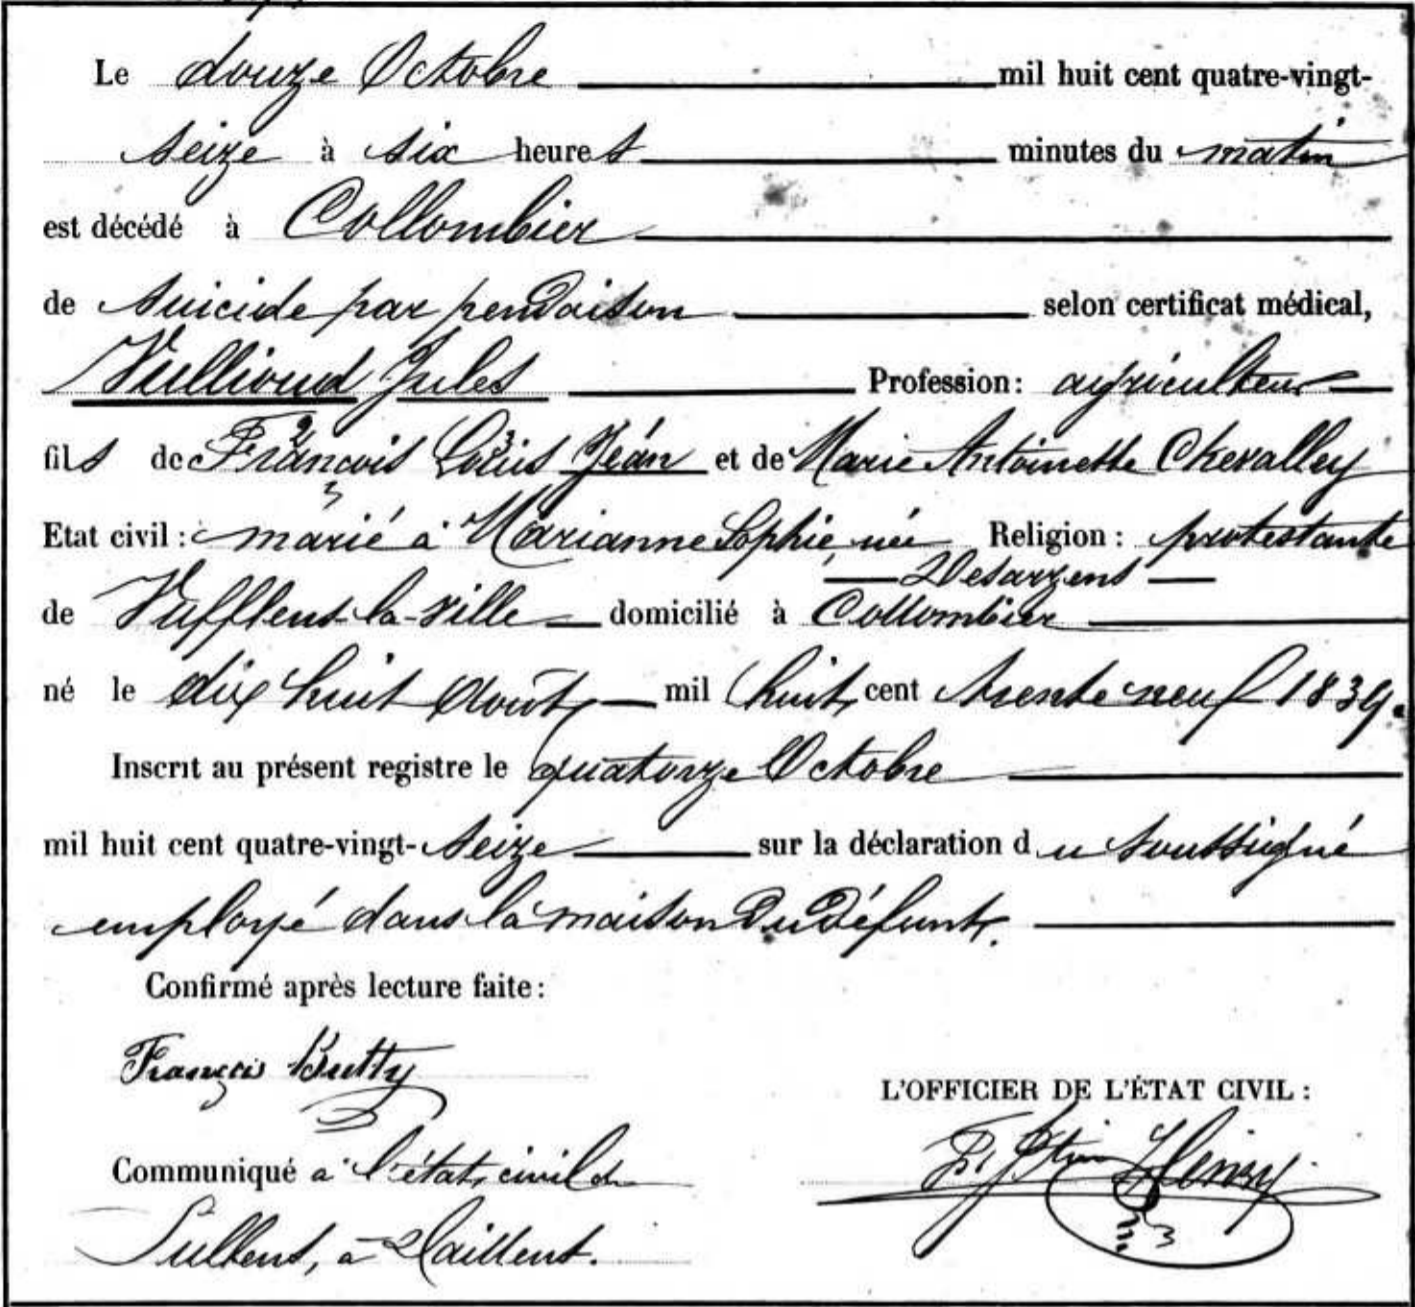 Le douze Octobre mil huit cent quatre-vingt-
seize à six heures minutes du matin
est décédé à Collombier
de suicide par pendaison selon certificat médical,
Vullioud Jules Profession: agriculteur
fils de François Louis Jean et de Marie Antoinette Chevalley
Etat civil: marié à Marianne Sophie, née Religion: protestante
Desarzens
de Vufflens-la-ville domicilié à Collombier
né le dix huit Août mil huit cent trente neuf 1839.
Inscrit au présent registre le quatorze Octobre
mil huit cent quatre-vingt-seize sur la déclaration du soussigné
employé dans la maison du défunt.
Confirmé après lecture faite:
François Butty
L'OFFICIER DE L'ÉTAT CIVIL:
Henry
Communiqué à l'état civil de
Sullens, à Daillens.